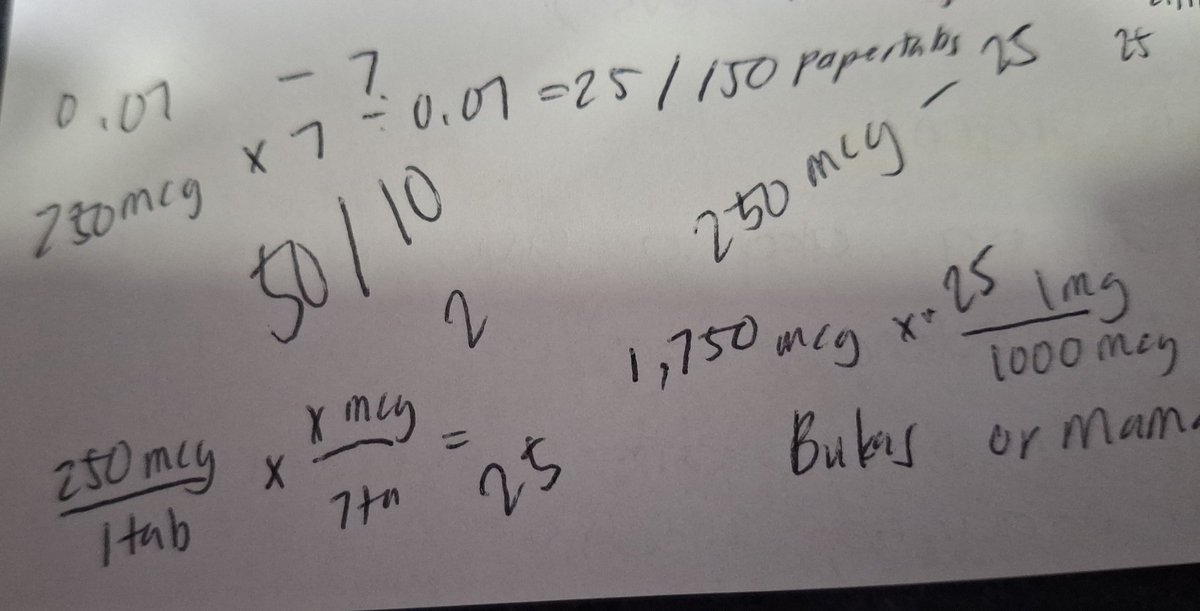 0.07 - 7
250mcg x 7 ÷ 0.07 = 25 / 150 papertabs 25 25
50 / 10
2
250 mcg -
1,750 mcg x 25 1mg
1000 mcg
250 mcg x x mcg = 25
1 tab 7 ta
Bukas or mam